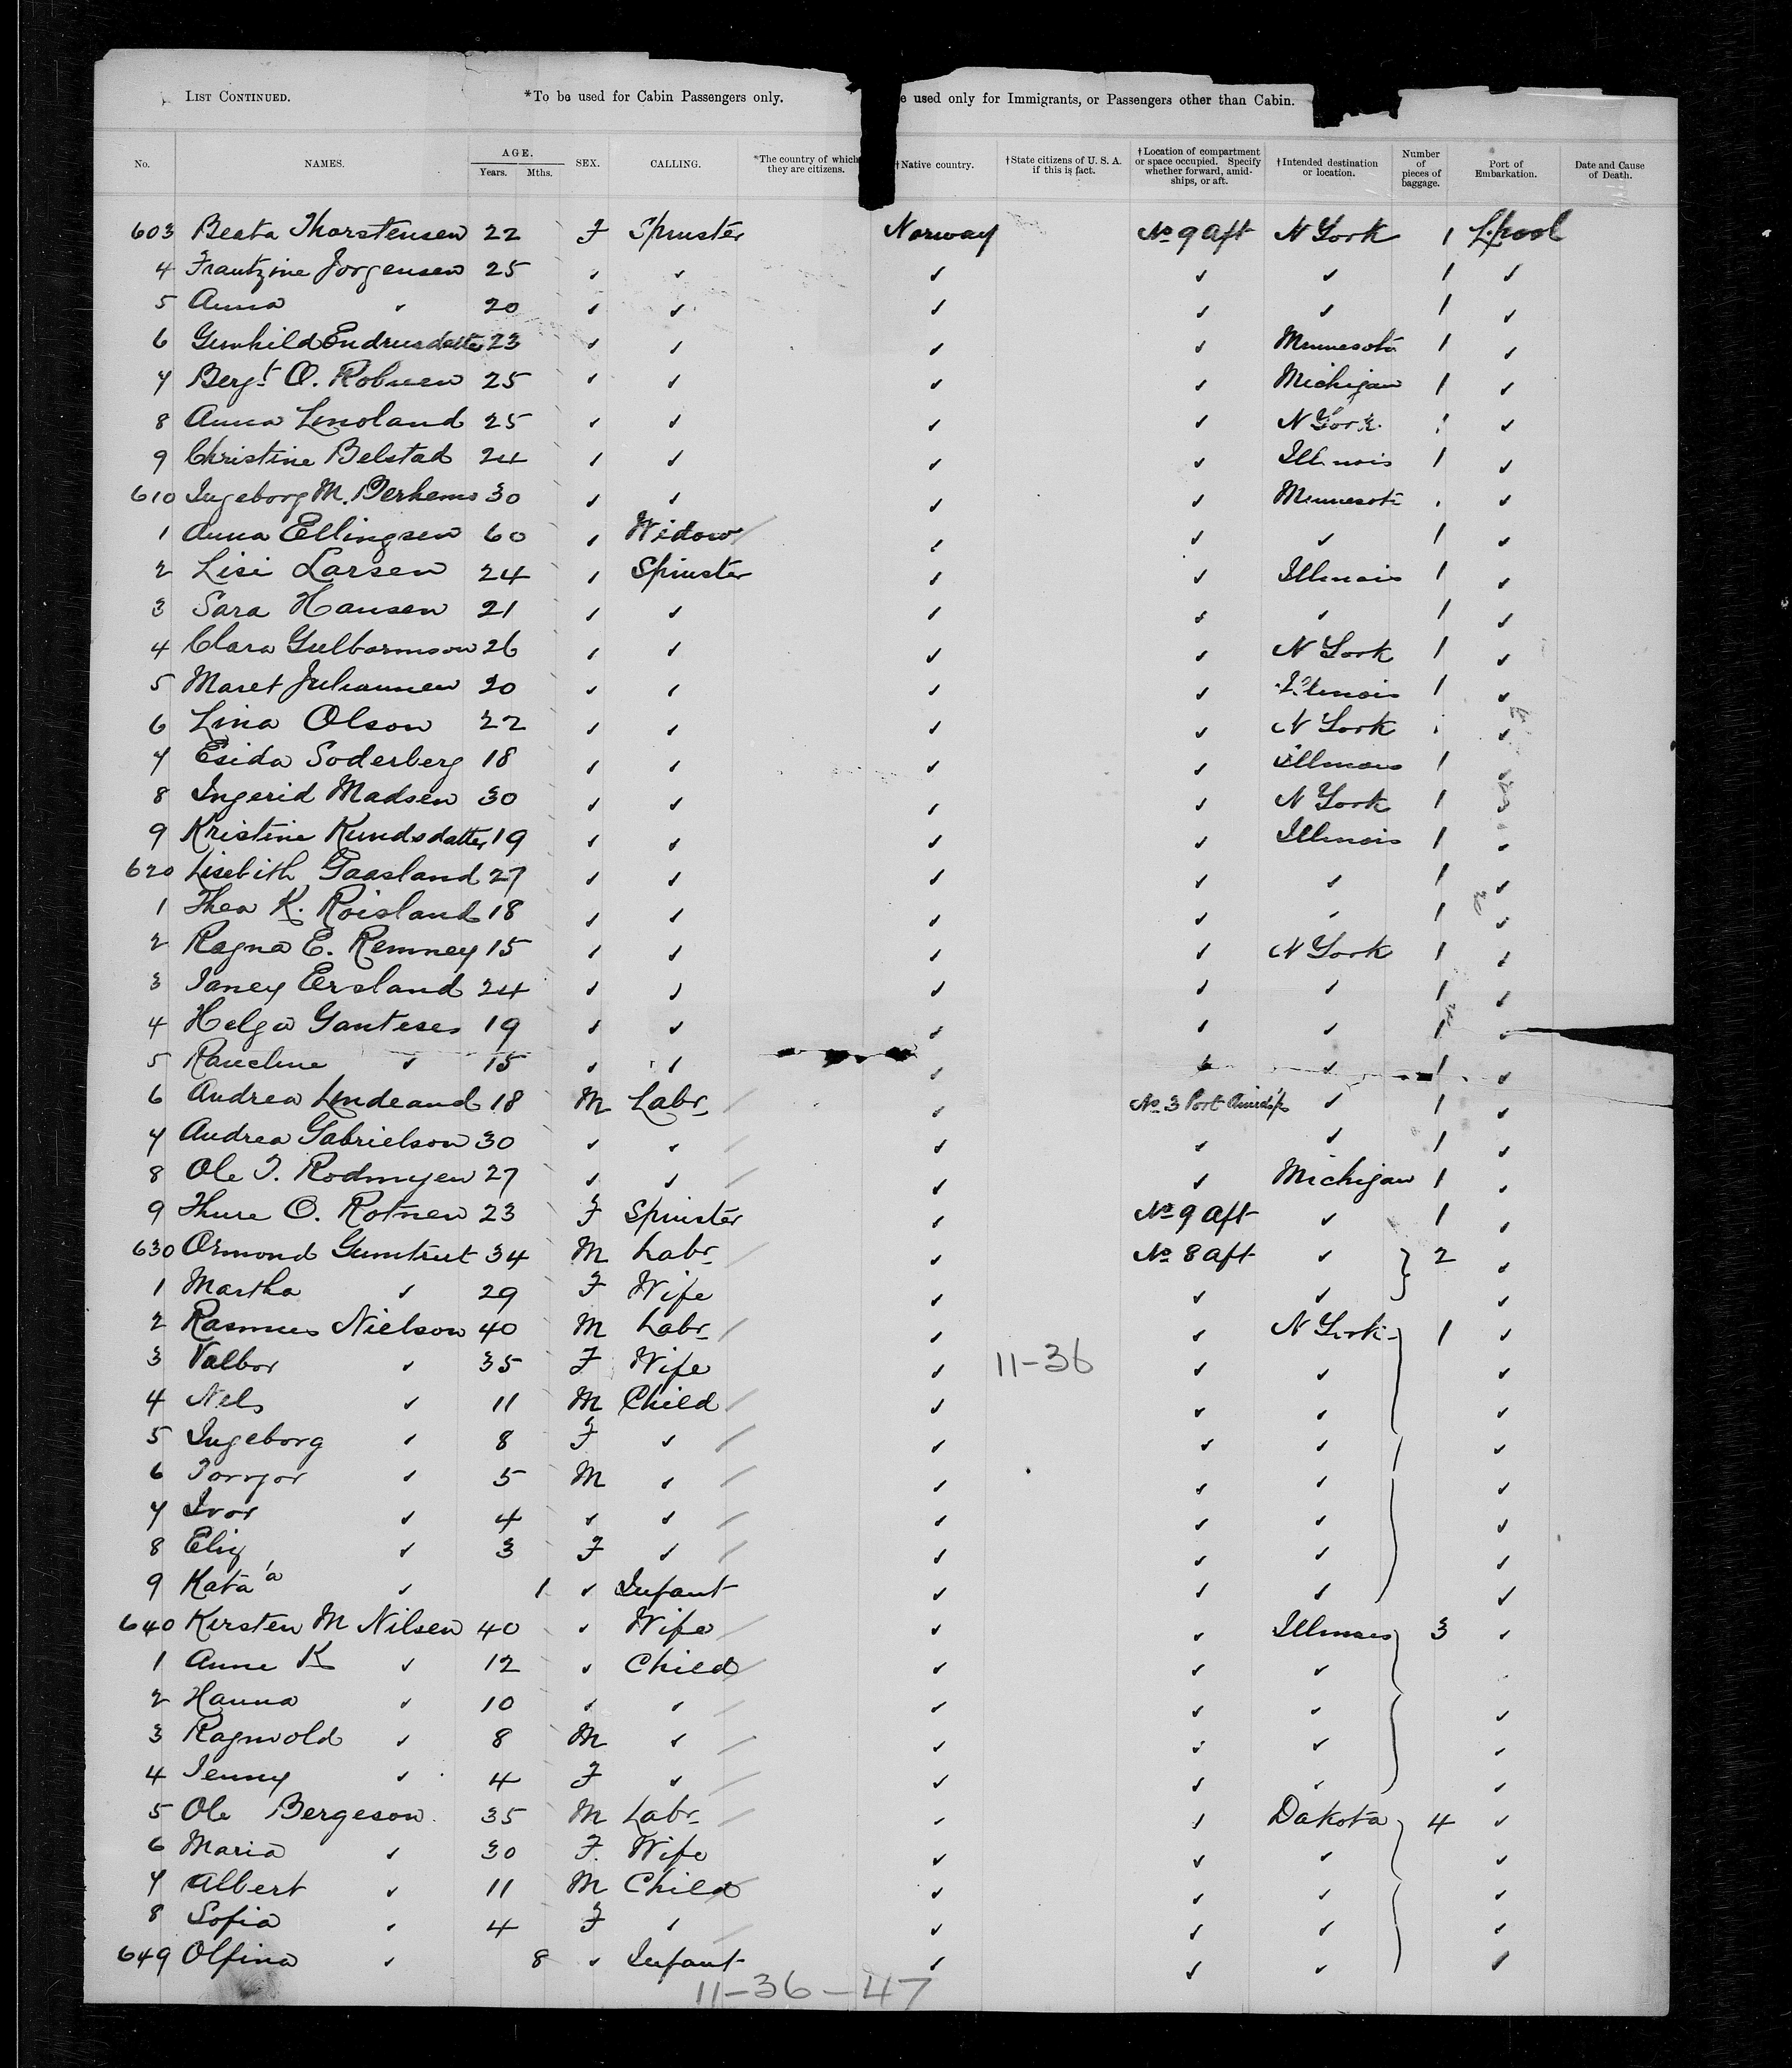 LIST CONTINUED. *To be used for Cabin Passengers only. e used only for Immigrants, or Passengers other than Cabin.
No. NAMES. AGE. Years. Mths. SEX. CALLING. *The country of which they are citizens. †Native country. †State citizens of U. S. A. if this is fact. †Location of compartment or space occupied. Specify whether forward, amidships, or aft. †Intended destination or location. Number of pieces of baggage. Port of Embarkation. Date and Cause of Death.
603 Beata Thorstensen 22 F Spinster Norway No 9 aft N York 1 L.pool
4 Frautzine Jorgensen 25 ✓ ✓ ✓ ✓ ✓ 1 ✓
5 Anna ✓ 20 ✓ ✓ ✓ ✓ ✓ 1 ✓
6 Gunhild Endrusdatter 23 ✓ ✓ ✓ ✓ Minnesota 1 ✓
7 Bergt O. Robnen 25 ✓ ✓ ✓ ✓ Michigan 1 ✓
8 Anna Lenoland 25 ✓ ✓ ✓ ✓ N York 1 ✓
9 Christine Belstad 24 ✓ ✓ ✓ ✓ Illinois 1 ✓
610 Ingeborg M. Berhems 30 ✓ ✓ ✓ ✓ Minnesota 1 ✓
1 Anna Ellingsen 60 ✓ Widow ✓ ✓ ✓ 1 ✓
2 Lisi Larsen 24 ✓ Spinster ✓ ✓ Illinois 1 ✓
3 Sara Hansen 21 ✓ ✓ ✓ ✓ ✓ 1 ✓
4 Clara Gulbormson 26 ✓ ✓ ✓ ✓ N York 1 ✓
5 Maret Juliannen 20 ✓ ✓ ✓ ✓ Illinois 1 ✓
6 Lina Olson 22 ✓ ✓ ✓ ✓ N York 1 ✓
7 Esida Soderberg 18 ✓ ✓ ✓ ✓ Illinois 1 ✓
8 Ingerid Madsen 30 ✓ ✓ ✓ ✓ N York 1 ✓
9 Kristine Kundsdatter 19 ✓ ✓ ✓ ✓ Illinois 1 ✓
620 Lisebith Gaasland 27 ✓ ✓ ✓ ✓ ✓ 1 ✓
1 Thea K. Roisland 18 ✓ ✓ ✓ ✓ ✓ 1 ✓
2 Ragna E. Remney 15 ✓ ✓ ✓ ✓ N York 1 ✓
3 Janey Ersland 24 ✓ ✓ ✓ ✓ ✓ 1 ✓
4 Helga Ganteses 19 ✓ ✓ ✓ ✓ ✓ 1 ✓
5 Raucline ✓ 15 ✓ ✓ ✓ ✓ ✓ 1 ✓
6 Andrea Lindeand 18 M Labr ✓ No 3 Port Amidsps ✓ 1 ✓
7 Andrea Gabrielson 30 ✓ ✓ ✓ ✓ ✓ 1 ✓
8 Ole T. Rodmyen 27 ✓ ✓ ✓ ✓ Michigan 1 ✓
9 Thure O. Rotnen 23 F Spinster ✓ No 9 aft ✓ 1 ✓
630 Ormond Gumtrut 34 M Labr ✓ No 8 aft ✓ 2 ✓
1 Martha ✓ 29 F Wife ✓ ✓ ✓ ✓
2 Rasmus Nielson 40 M Labr ✓ ✓ N York 1 ✓
3 Valbor ✓ 35 F Wife ✓ 11-36 ✓ ✓ ✓
4 Nels ✓ 11 M Child ✓ ✓ ✓ ✓
5 Ingeborg ✓ 8 F ✓ ✓ ✓ ✓ ✓
6 Torgor ✓ 5 M ✓ ✓ ✓ ✓ ✓
7 Ivor ✓ 4 ✓ ✓ ✓ ✓ ✓ ✓
8 Eliz ✓ 3 F ✓ ✓ ✓ ✓ ✓
9 Kata'a ✓ 1 ✓ Infant ✓ ✓ ✓ ✓
640 Kirsten M Nilsen 40 ✓ Wife ✓ ✓ Illinois 3 ✓
1 Anne K ✓ 12 ✓ Child ✓ ✓ ✓
2 Hanna ✓ 10 ✓ ✓ ✓ ✓ ✓ ✓
3 Ragnvold ✓ 8 M ✓ ✓ ✓ ✓ ✓
4 Jenny ✓ 4 F ✓ ✓ ✓ ✓ ✓
5 Ole Bergeson 35 M Labr ✓ ✓ Dakota 4 ✓
6 Maria ✓ 30 F Wife ✓ ✓ ✓ ✓
7 Albert ✓ 11 M Child ✓ ✓ ✓ ✓
8 Sofia ✓ 4 F ✓ ✓ ✓ ✓ ✓
649 Olfina ✓ 8 ✓ Infant ✓ ✓ ✓ ✓
11-36-47